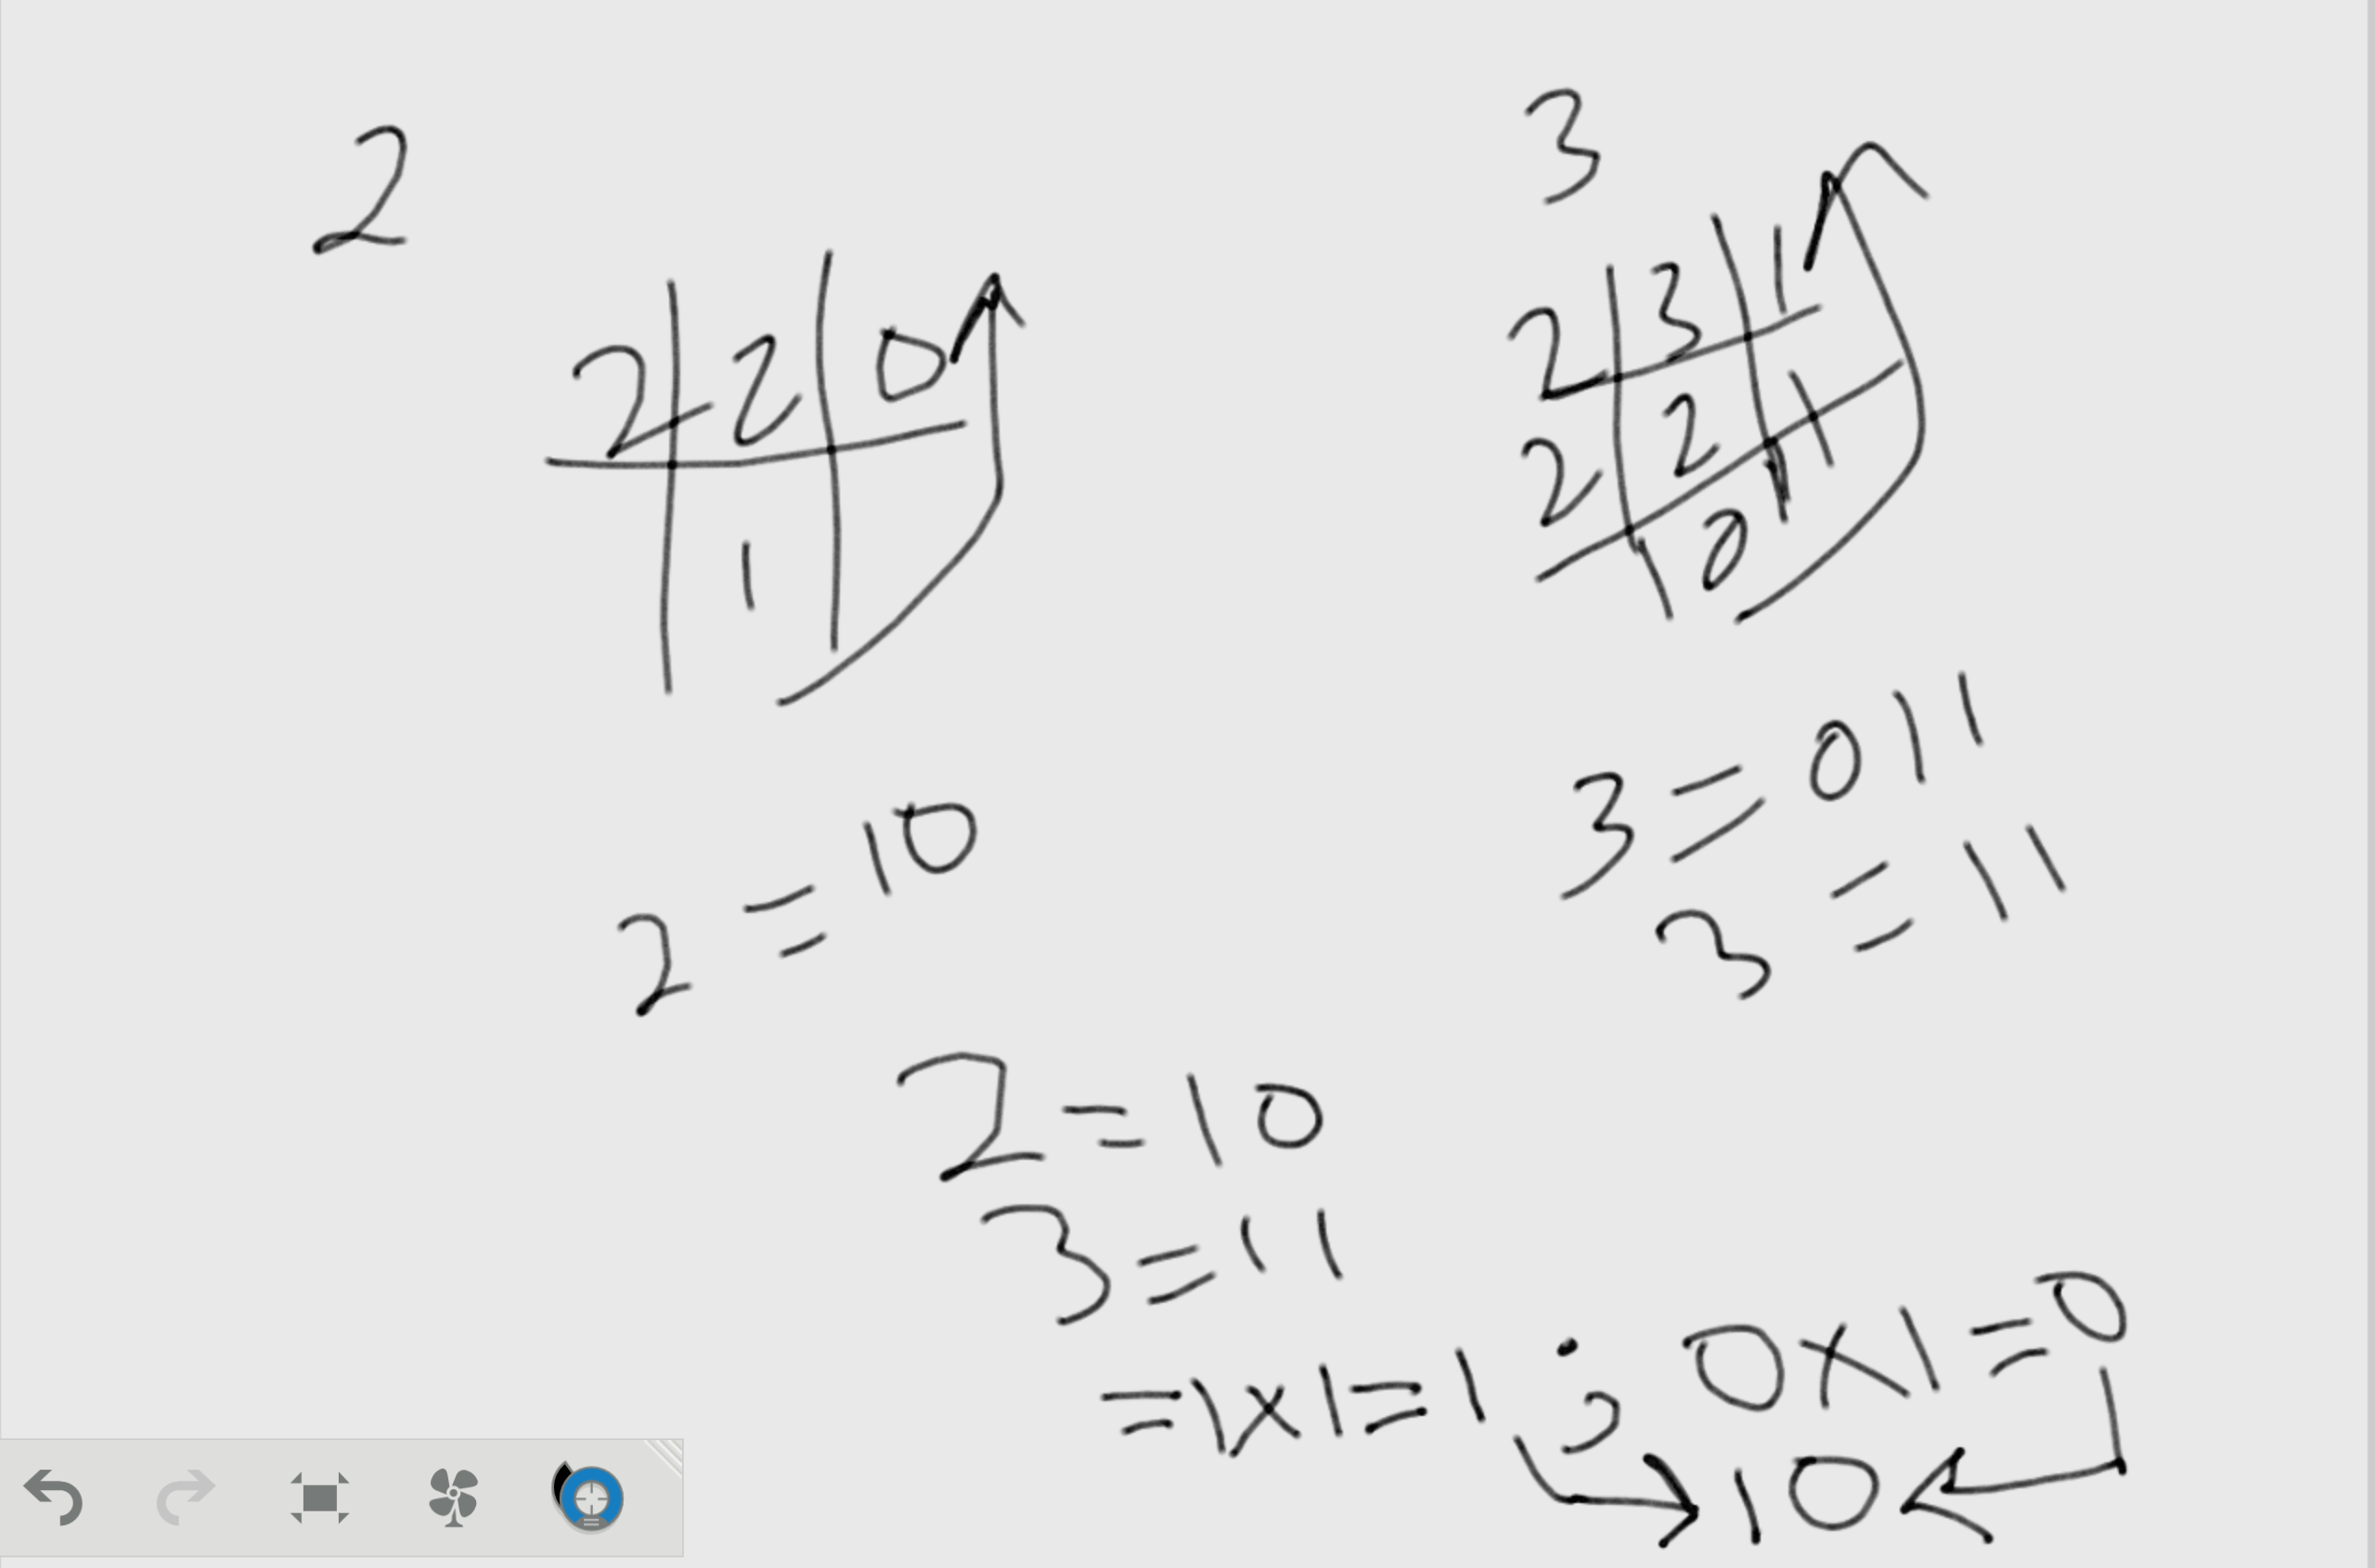 2
2 2 0
1
2 = 10
3
2 3 1
2 2 1
3 = 011
3 = 11
2 = 10
3 = 11
= 1x1 = 1 ; 0x1 = 0
10